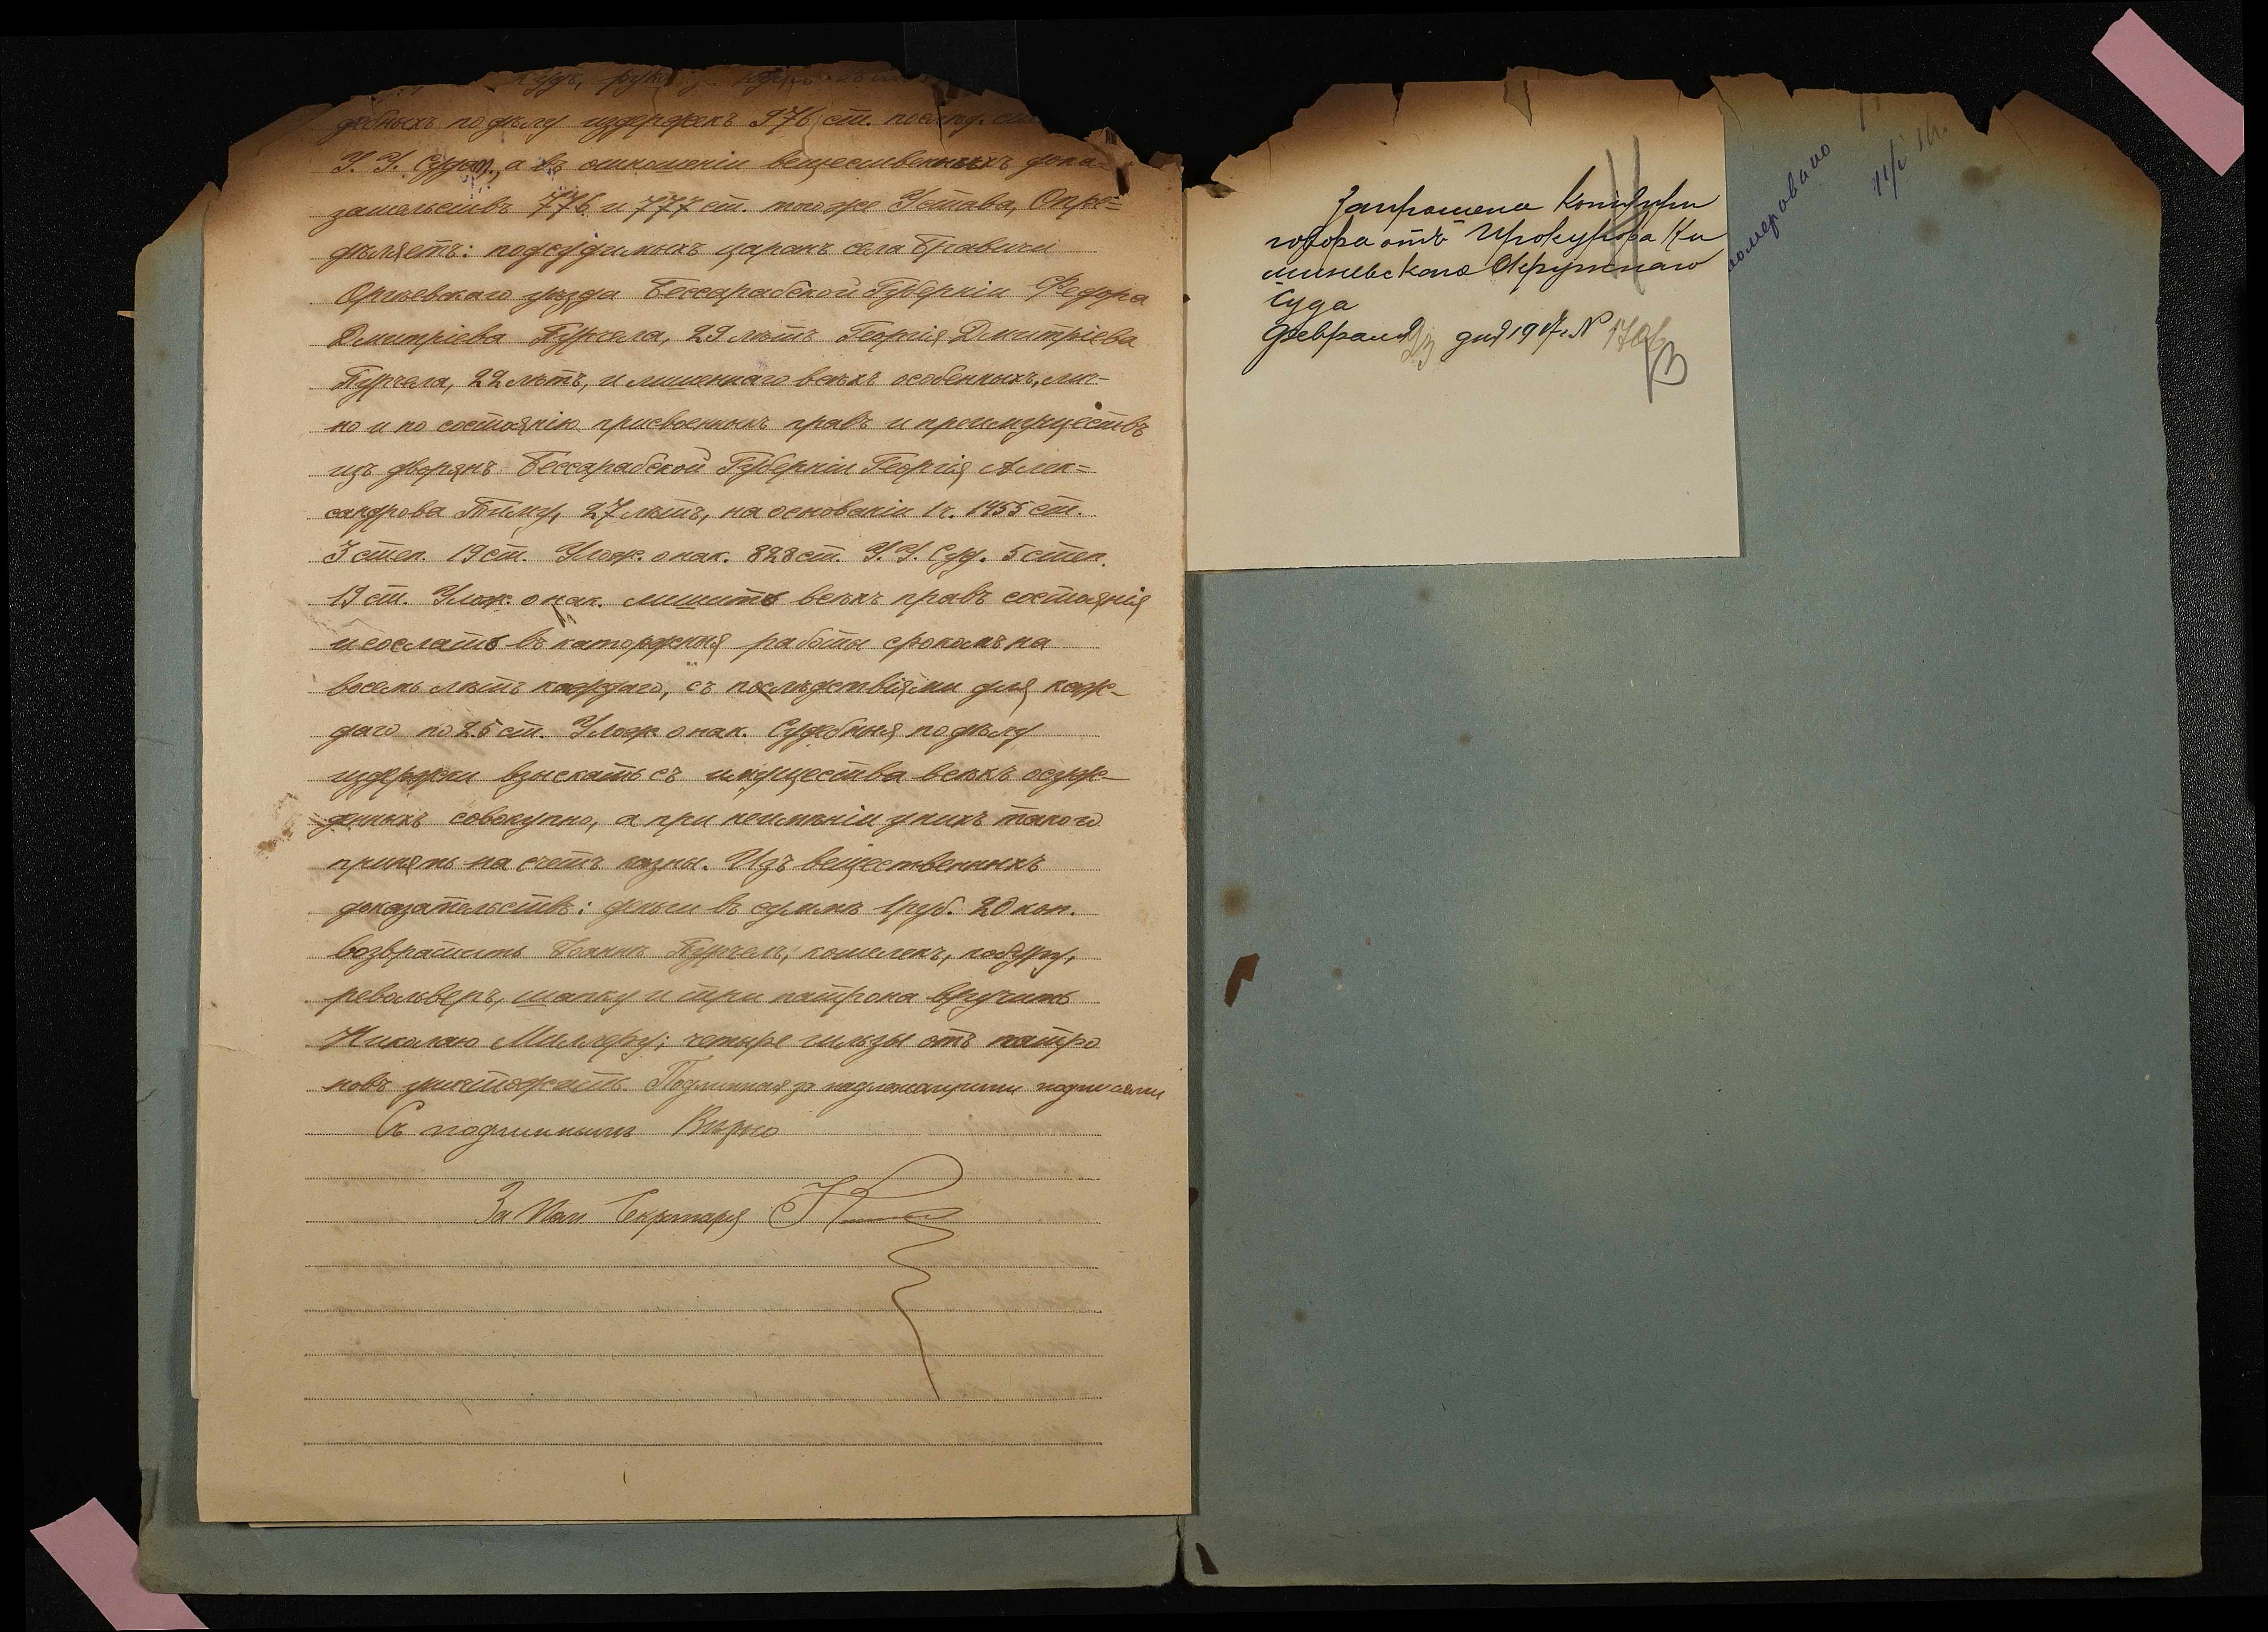 дебныхъ по дѣлу издержекъ 976 ст.
У. У. Суд., а въ отношеніи вещественныхъ дока=
зательствъ 776 и 777 ст. того же Устава, Опре=
дѣляетъ: подсудимыхъ царанъ села Бравичи
Оргѣевскаго уѣзда Бессарабской Губерніи Федора
Дмитріева Пурчела, 29 лѣтъ Георгія Дмитріева
Пурчела, 22 лѣтъ, и лишеннаго всѣхъ особенныхъ, лич-
но и по состоянію присвоенныхъ правъ и преимуществъ
изъ дворянъ Бессарабской Губерніи Георгія Алек=
сандрова 27 лѣтъ, на основаніи 1 ч. 1455 ст.
3 степ. 19 ст. Улож. о нак. 828 ст. У. У. Суд. 5 степ.
19 ст. Улож. о нак. лишить всѣхъ правъ состоянія
и сослать въ каторжныя работы срокомъ на
восемь лѣтъ каждаго, съ послѣдствіями для каж-
даго по 25 ст. Улож. о нак. Судебныя по дѣлу
издержки взыскать съ имущества всѣхъ осуж-
денныхъ совокупно, а при неимѣніи у нихъ такого
принять на счетъ казны. Изъ вещественныхъ
доказательствъ: деньги въ суммѣ 1 руб. 20 коп.
возвратить Пурчелъ, кошелекъ, кобуру,
револьверъ, шапку и три патрона вручить
Николаю Миллеру; четыре гильзы отъ патро
новъ уничтожить. Подлинная за надлежащими подписями
Съ подлиннымъ Вѣрно
За Пом Секретаря
Запрошена Копія при
говора отъ Прокурора Ки
шиневскаго Окружнаго
Суда
Февраля 23 дня 1917 г. N
номеровано